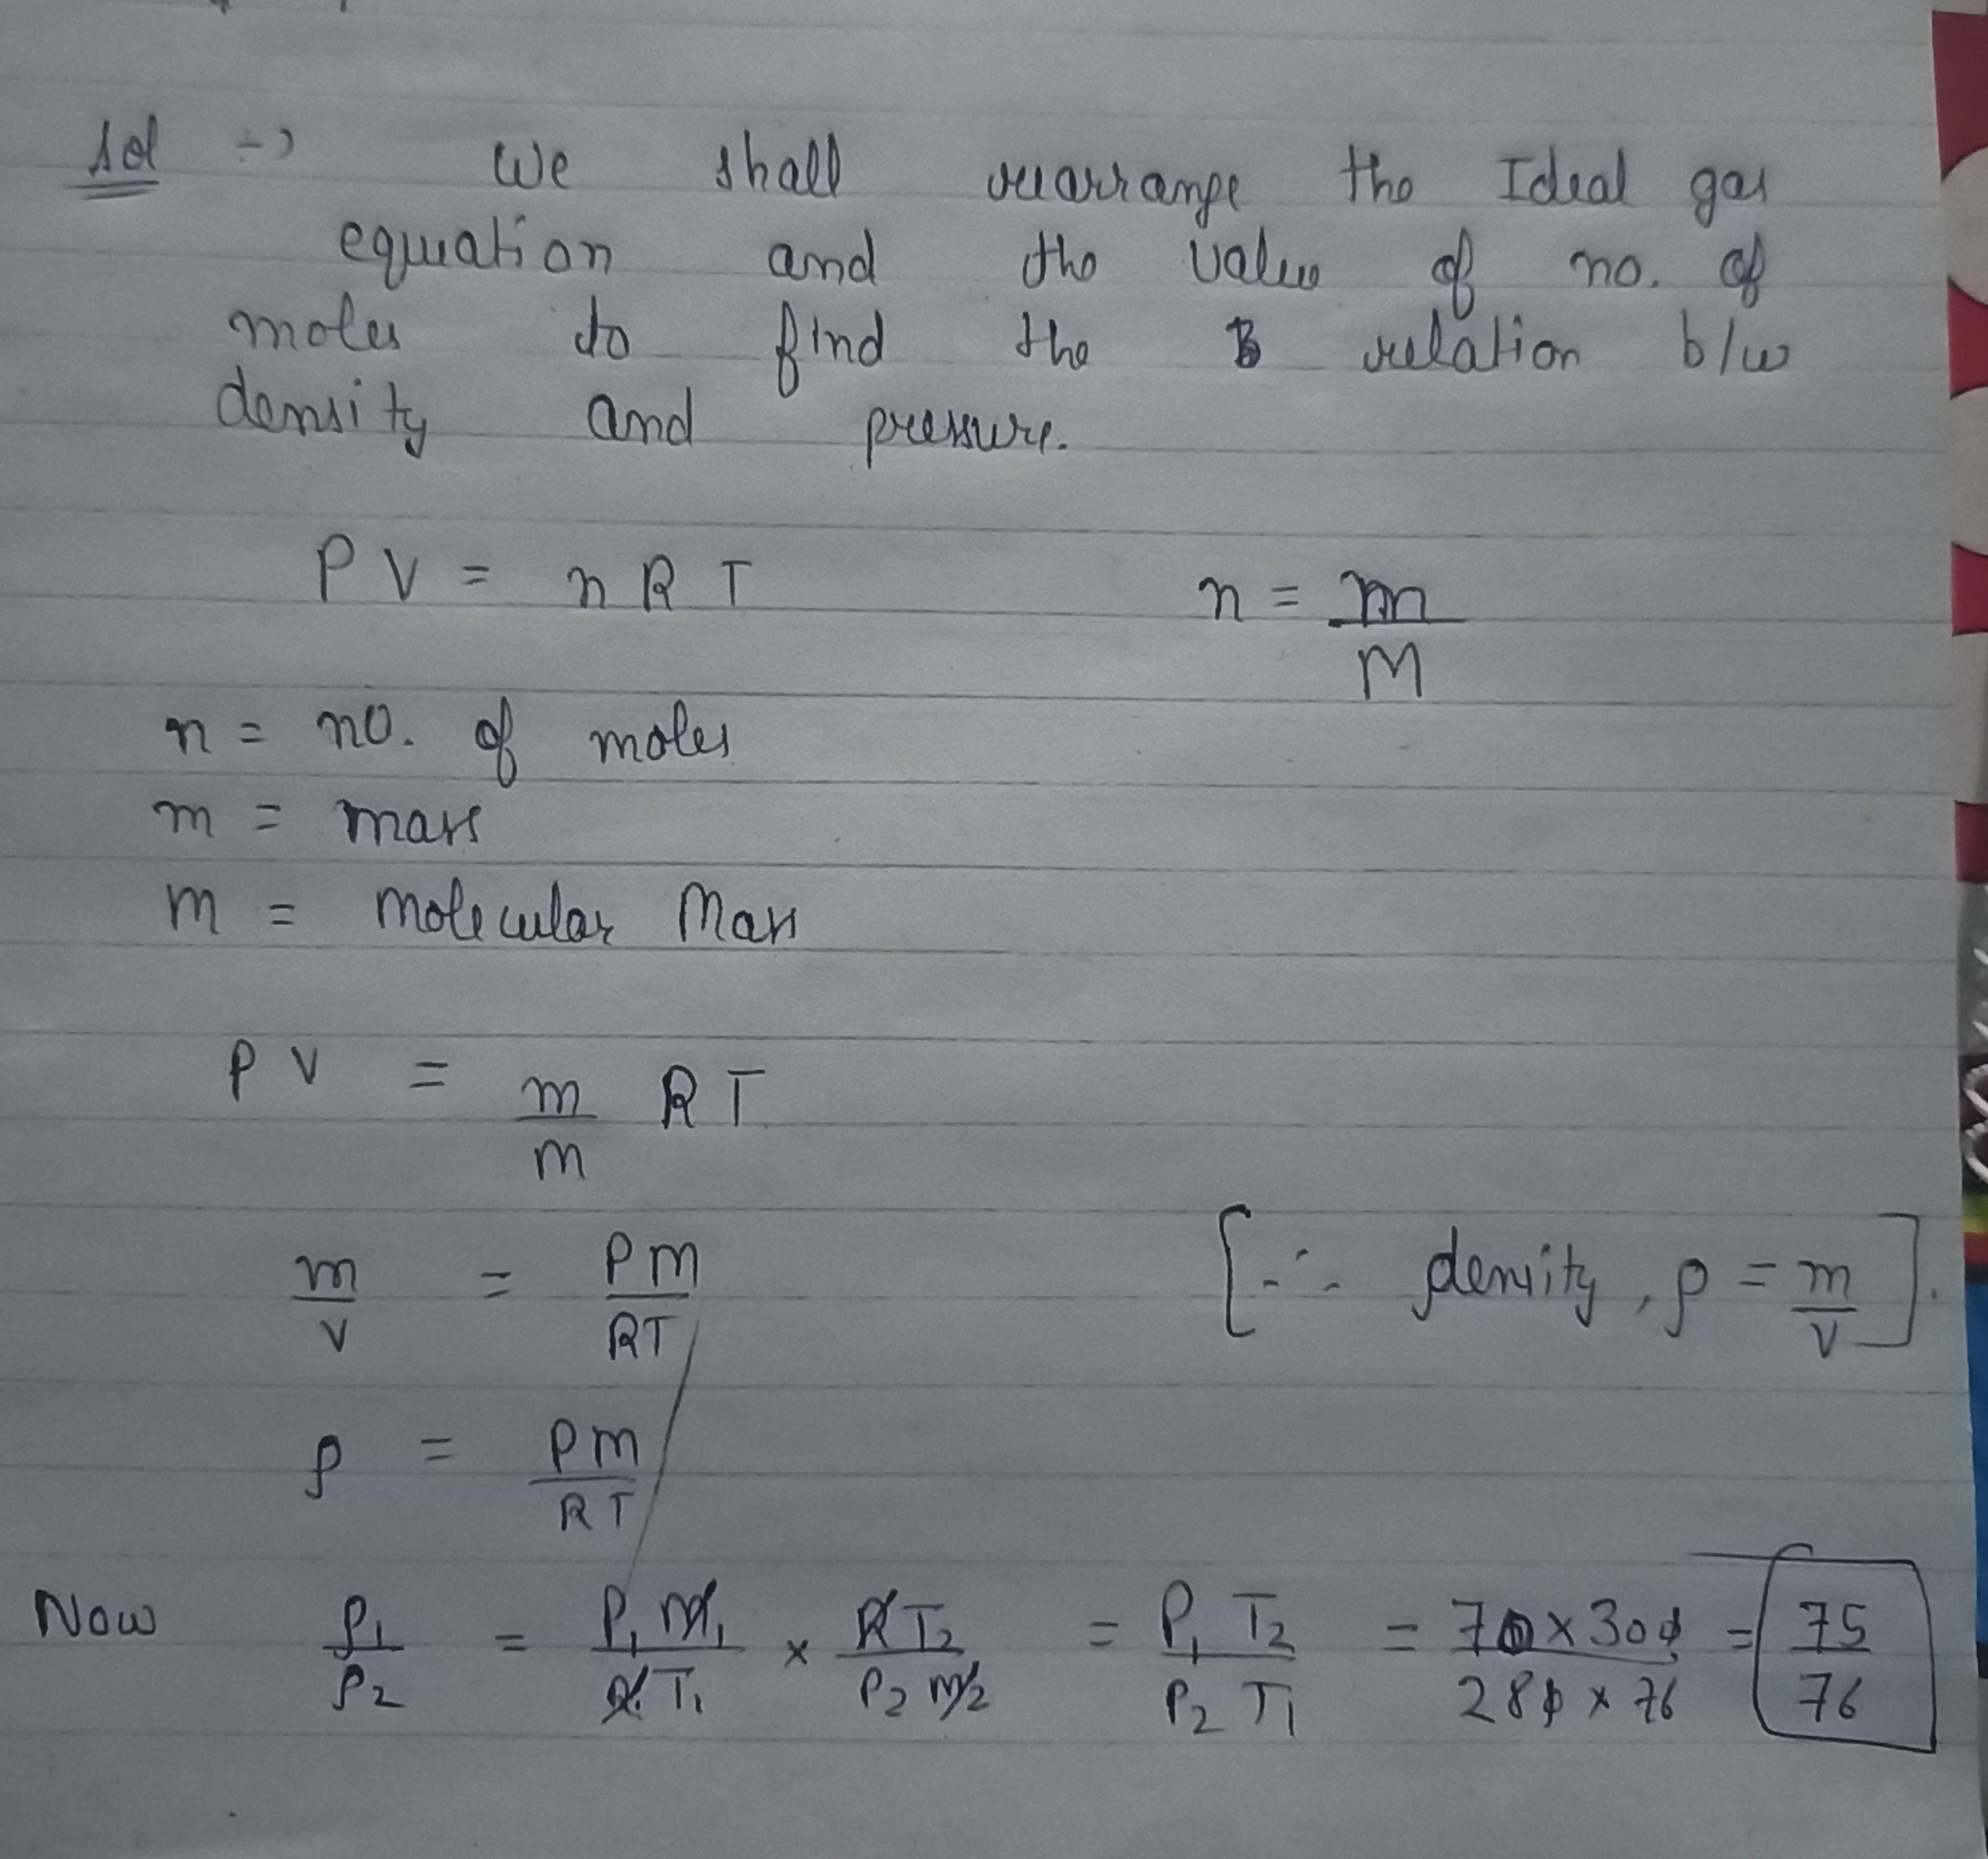 Sol :-) We shall rearrange the Ideal gas
equation and the value of no. of
moles to find the relation b/w
density and pressure.
PV = nRT n = m/M
n = no. of moles
m = mass
m = molecular Mass
PV = m/m RT
m/V = PM/RT [∴ density, ρ = m/V].
ρ = PM/RT
Now ρ1/ρ2 = P1 M1/RT1 × RT2/P2 M2 = P1 T2/P2 T1 = 70×300/280×76 = 75/76